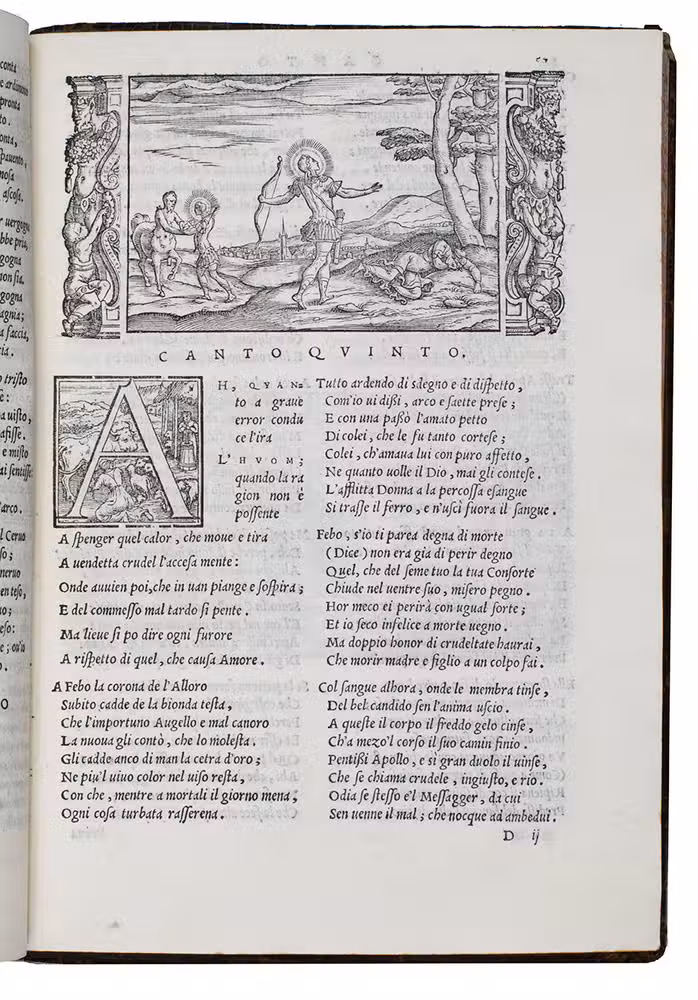 conta
pronta
to.
onta,
spauento,
nosa
ascosa.
uergogna
bbe pria,
gogna
non sia.
gogna
agnia;
a faccia,
ria.
tristo
e:
a uisto,
afisse.
e misto
ai sentisse
l'arco.
l Ceruo
so;
neruo
en teso,
uo;
eso:
e; ou'io
O
CANTO QVINTO.
AH, QVAN=
to a graue
error condu
ce l'ira
L'HVOM;
quando la ra
gion non è
possente
A spenger quel calor, che moue e tira
A uendetta crudel l'accesa mente:
Onde auuien poi, che in uan piange e sospira;
E del commesso mal tardo si pente.
Ma lieue si po dire ogni furore
A rispetto di quel, che causa Amore.
A Febo la corona de l'Alloro
Subito cadde de la bionda testa,
Che l'importuno Augello e mal canoro
La nuoua gli contò, che lo molesta.
Gli cadde anco di man la cetra d'oro;
Ne piu'l uiuo color nel uiso resta,
Con che, mentre a mortali il giorno mena,
Ogni cosa turbata rasserena.
Tutto ardendo di sdegno e di dispetto,
Com'io ui dissi, arco e saette prese;
E con una passò l'amato petto
Di colei, che le fu tanto cortese;
Colei, ch'amaua lui con puro affetto,
Ne quanto uolle il Dio, mai gli contese.
L'afflitta Donna a la percossa esangue
Si trasse il ferro, e n'uscì fuora il sangue.
Febo, s'io ti parea degna di morte
(Dice) non era gia di perir degno
Quel, che del seme tuo la tua Consorte
Chiude nel uentre suo, misero pegno.
Hor meco ei perirà con ugual sorte;
Et io seco infelice a morte uegno.
Ma doppio honor di crudeltate haurai,
Che morir madre e figlio a un colpo fai.
Col sangue alhora, onde le membra tinse,
Del bel candido sen l'anima uscio.
A queste il corpo il freddo gelo cinse,
Ch'a mezo'l corso il suo camin finio.
Pentissi Apollo, e sì gran duolo il uinse,
Che se chiama crudele, ingiusto, e rio.
Odia se stesso e'l Messagger, da cui
Sen uenne il mal; che nocque ad ambedui.
D ij